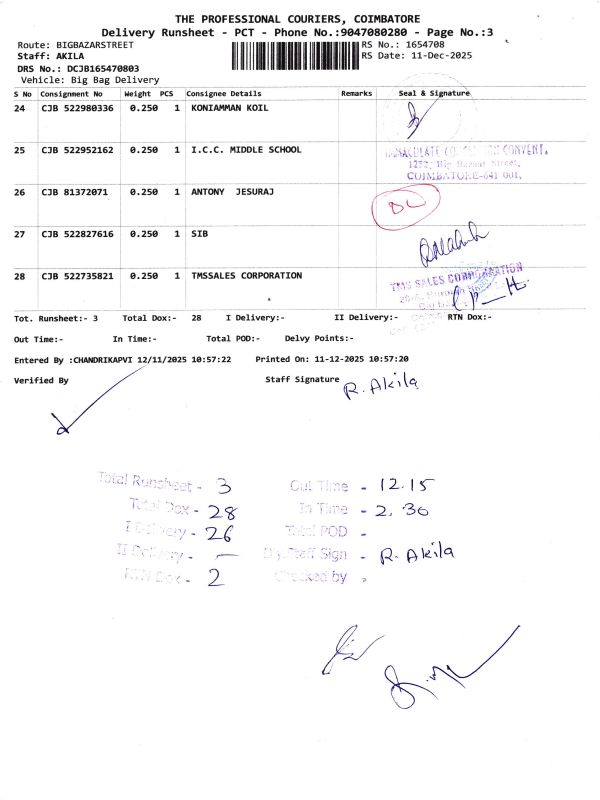 THE PROFESSIONAL COURIERS, COIMBATORE
Delivery Runsheet - PCT - Phone No.:9047080280 - Page No.:3
Route: BIGBAZARSTREET RS No.: 1654708
Staff: AKILA RS Date: 11-Dec-2025
DRS No.: DCJB165470803
Vehicle: Big Bag Delivery
S No Consignment No Weight PCS Consignee Details Remarks Seal & Signature
24 CJB 522980336 0.250 1 KONIAMMAN KOIL
25 CJB 522952162 0.250 1 I.C.C. MIDDLE SCHOOL
CONVENT.
1252, Big Bazaar Street,
COIMBATORE-641 001.
26 CJB 81372071 0.250 1 ANTONY JESURAJ
DL
27 CJB 522827616 0.250 1 SIB
28 CJB 522735821 0.250 1 TMSSALES CORPORATION
TMS SALES CORPORATION
Tot. Runsheet:- 3 Total Dox:- 28 I Delivery:- II Delivery:- RTN Dox:-
Out Time:- In Time:- Total POD:- Delvy Points:-
Entered By :CHANDRIKAPVI 12/11/2025 10:57:22 Printed On: 11-12-2025 10:57:20
Verified By Staff Signature R. Akila
Total Runsheet - 3 Out Time - 12.15
Total Dox - 28 In Time - 2.30
I Delivery - 26 Total POD -
II Delivery - — Dly.Staff Sign - R. Akila
RTN Dox - 2 Checked by -